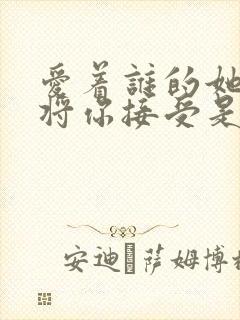 愛着誰的她
将你接受是
安迪 萨姆博